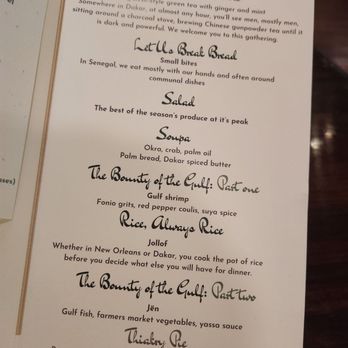 style green tea with ginger and mint
Somewhere in Dakar, at almost any hour, you'll see men, mostly men,
sitting around a charcoal stove, brewing Chinese gunpowder tea until it
is dark and powerful. We welcome you to this gathering.
Let Us Break Bread
Small bites
In Senegal, we eat mostly with our hands and often around
communal dishes
Salad
The best of the season's produce at it's peak
Soupa
Okra, crab, palm oil
Palm bread, Dakar spiced butter
The Bounty of the Gulf: Part one
Gulf shrimp
Fonio grits, red pepper coulis, suya spice
Rice, Always Rice
Jollof
Whether in New Orleans or Dakar, you cook the pot of rice
before you decide what else you will have for dinner.
The Bounty of the Gulf: Part two
Jën
Gulf fish, farmers market vegetables, yassa sauce
Thiakry Pie
uses)